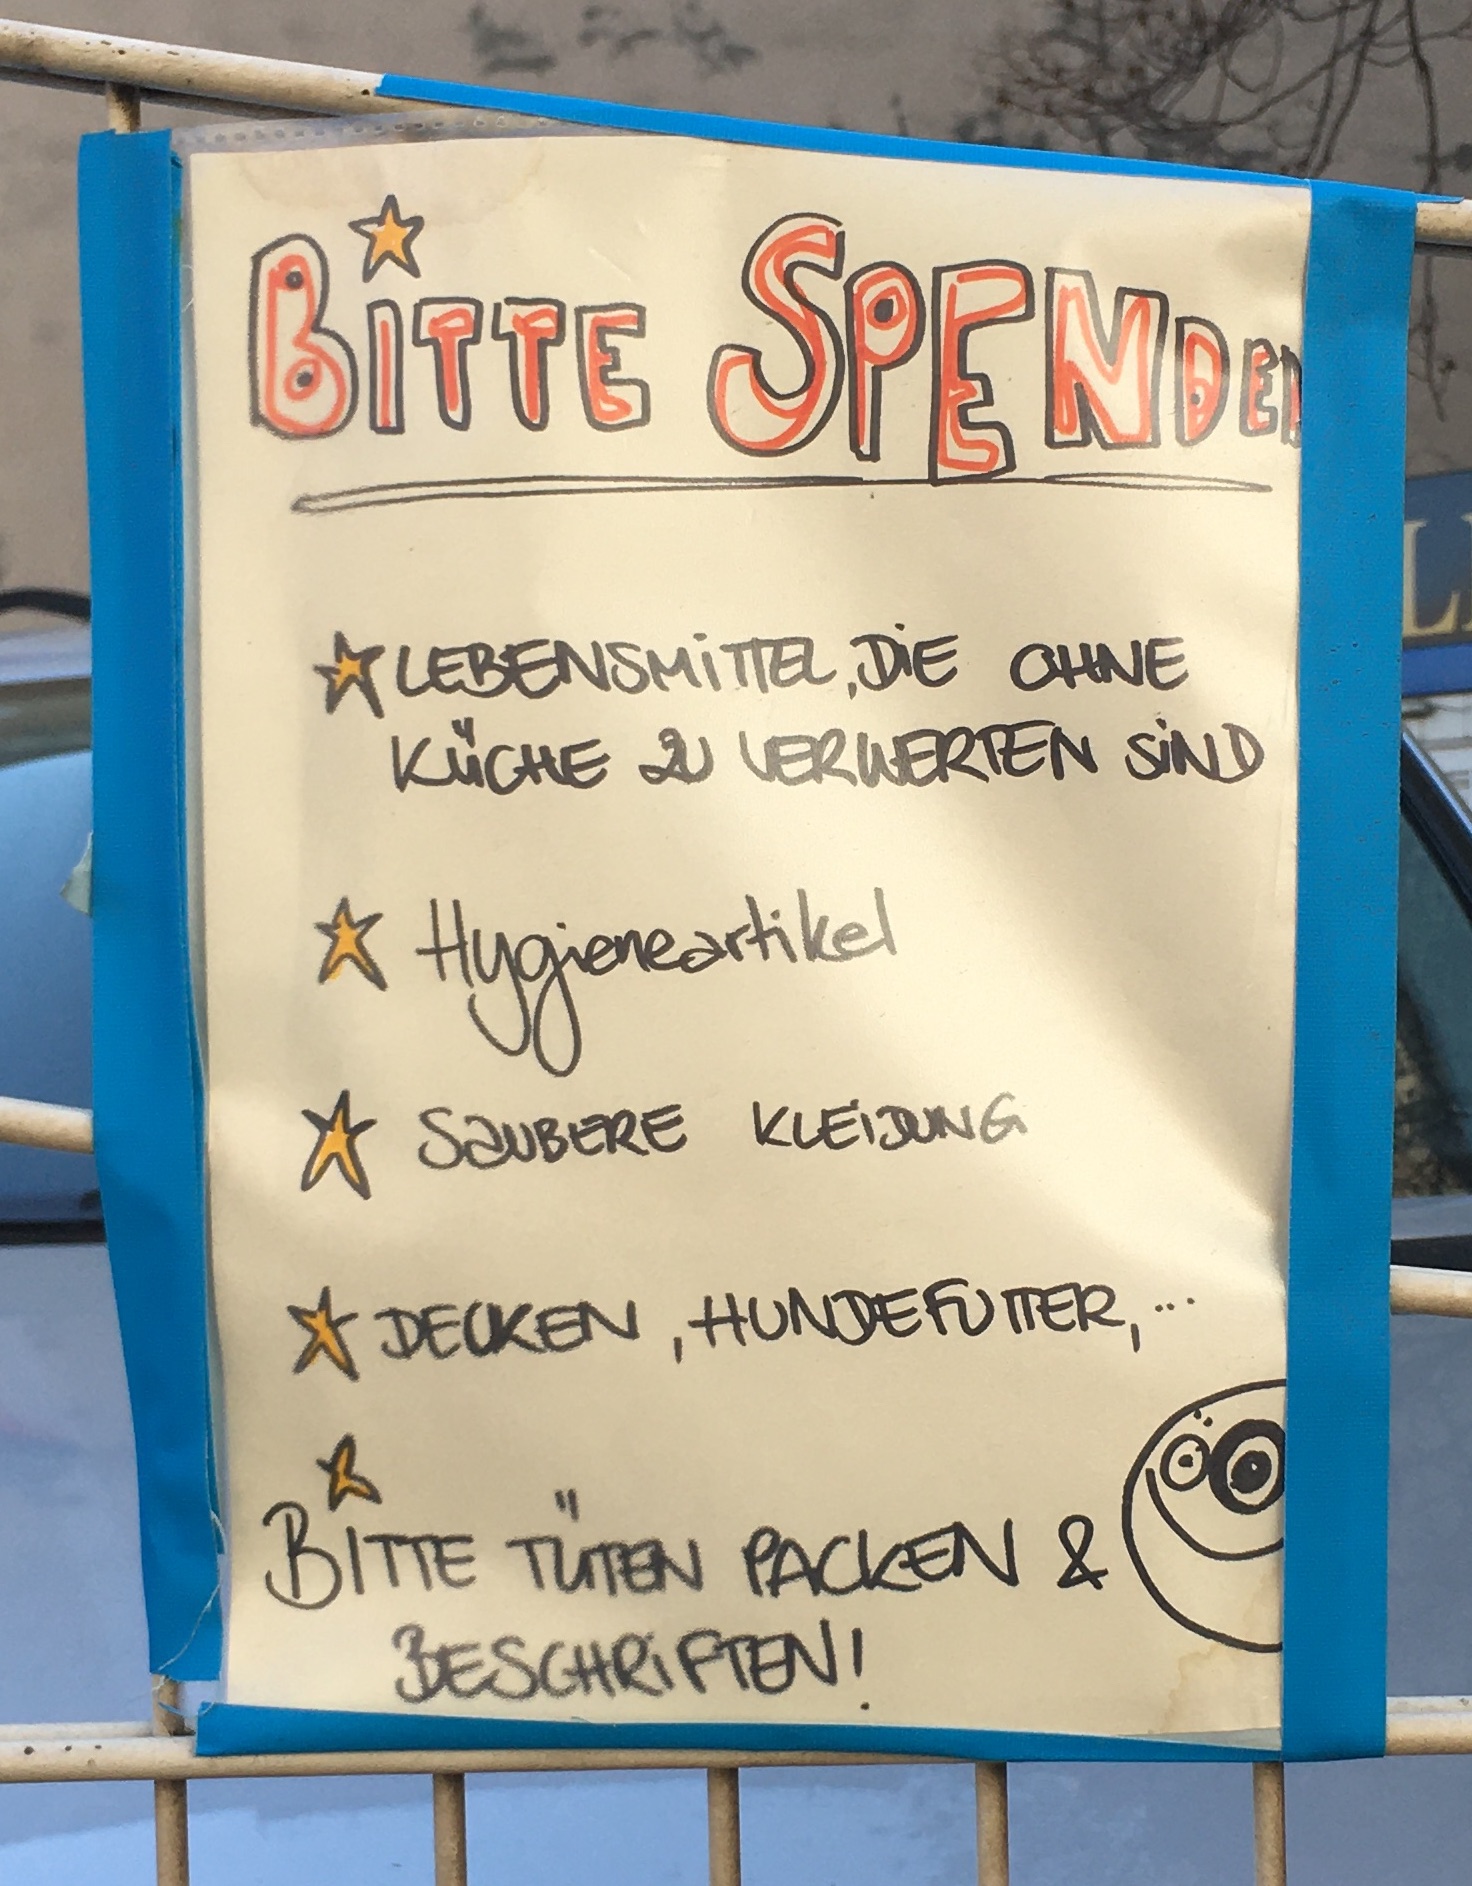 BITTE SPENDEN
LEBENSMITTEL, DIE OHNE
KÜCHE ZU VERWERTEN SIND
Hygieneartikel
SAUBERE KLEIDUNG
DECKEN, HUNDEFUTTER, ...
BITTE TÜTEN PACKEN &
BESCHRIFTEN!